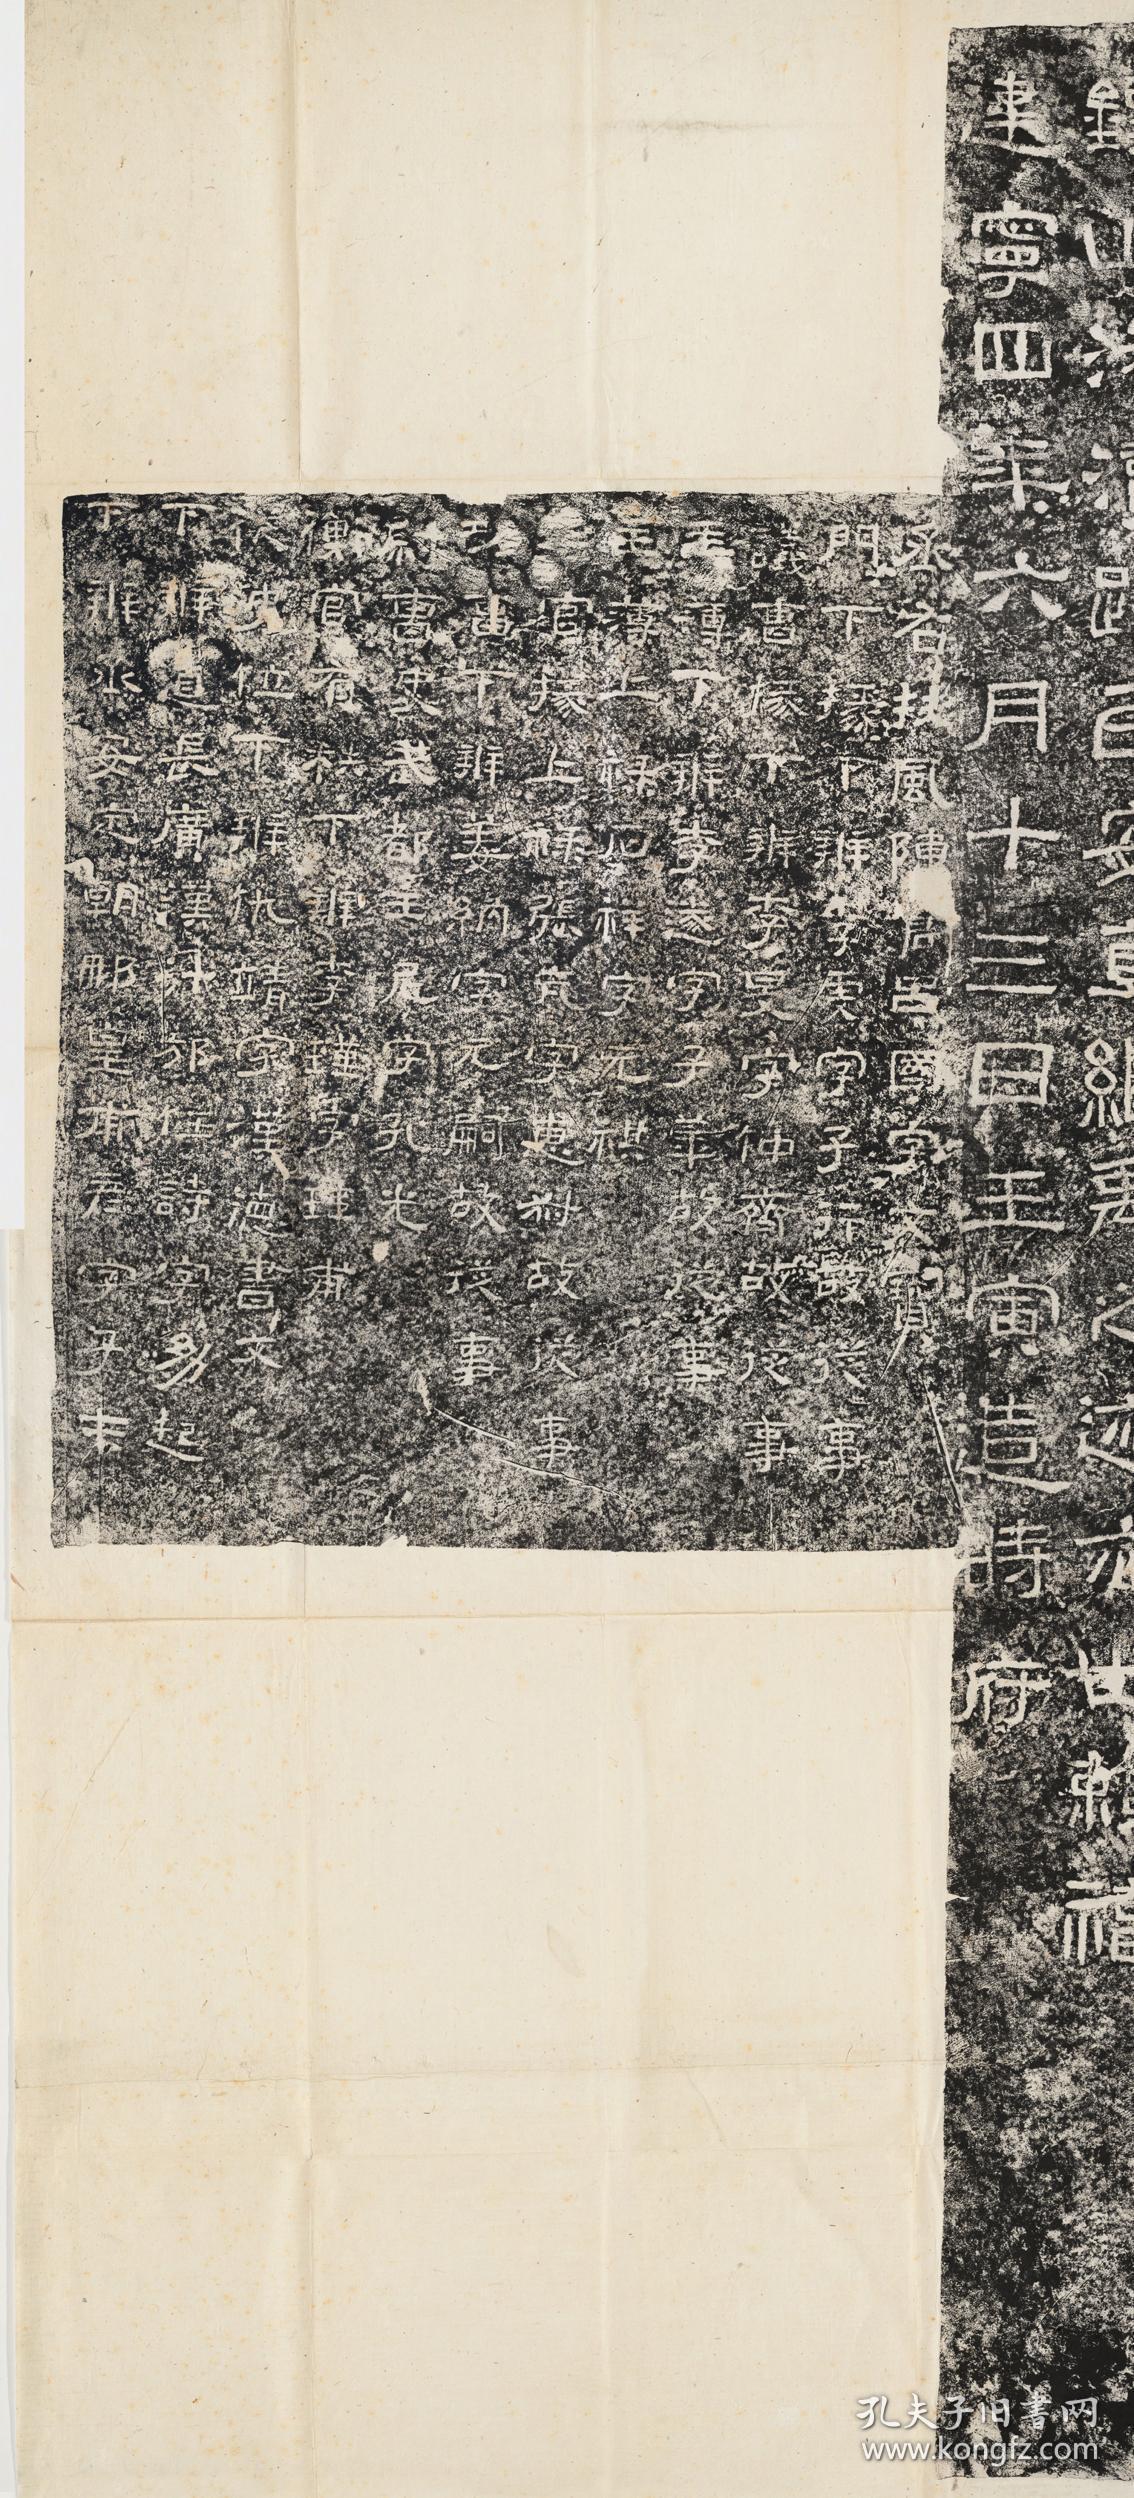 鐫山浚瀆路以安直繼禹之迹亦世賴福
建寧四年六月十三日壬寅造時府
丞右扶風陳倉呂國字文寶
門下掾下辨李虔字子行故從事
議曹掾下辨李旻字仲齊故從事
主簿下辨李遂字子華故從事
主簿上祿石祥字元祺
五官掾上祿張亢字惠叔故從事
功曹下辨姜納字元嗣故從事
尉曹史武都王尼字孔光
衡官有秩下辨李瑾字瑋甫
從史位下辨仇靖字漢德書文
下辨道長廣漢汁邡任詩字幼起
下辨丞安定朝那皇甫彥字子才
孔夫子旧書网
www.kongfz.com